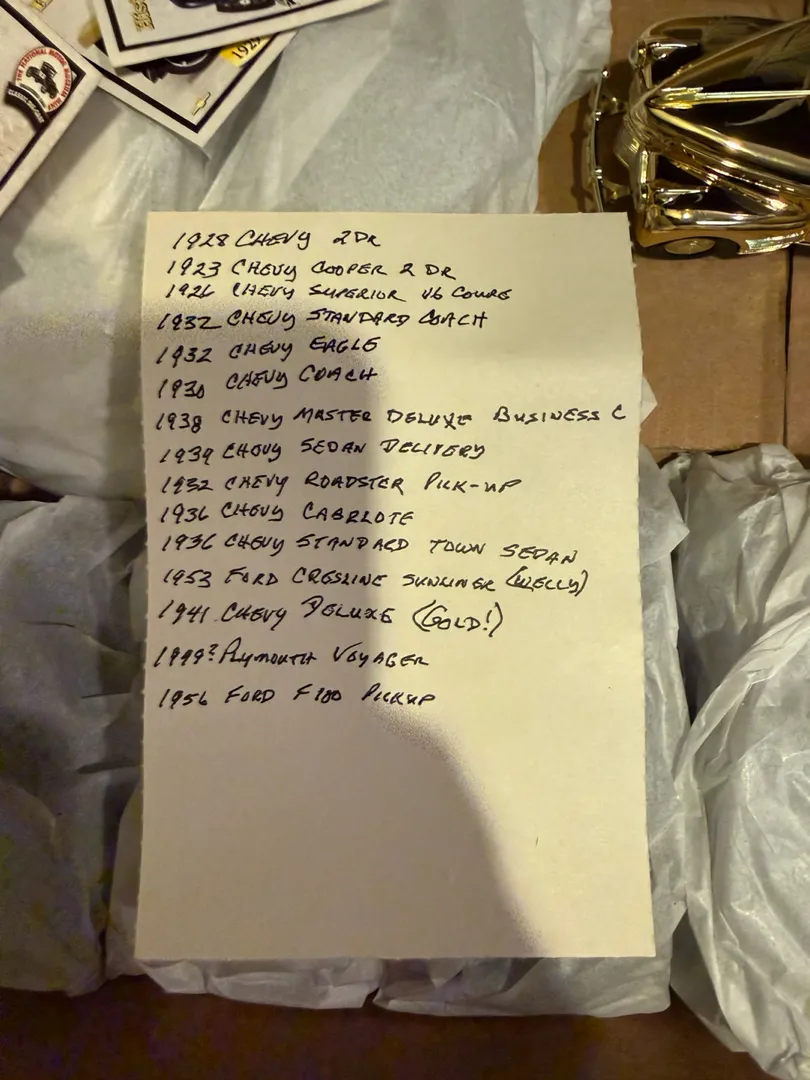 THE NATIONAL MOTOR MUSEUM MINT
1928 CHEVY 2DR
1923 CHEVY COOPER 2 DR
1926 CHEVY SUPERIOR V6 COUPE
1932 CHEVY STANDARD COACH
1932 CHEVY EAGLE
1930 CHEVY COACH
1938 CHEVY MASTER DELUXE BUSINESS C
1939 CHEVY SEDAN DELIVERY
1932 CHEVY ROADSTER PICK-UP
1936 CHEVY CABRLOTE
1936 CHEVY STANDARD TOWN SEDAN
1953 FORD CRESLINE SUNLINER (WELLY)
1941 CHEVY DELUXE (GOLD!)
1999? PLYMOUTH VOYAGER
1956 FORD F100 PICKUP